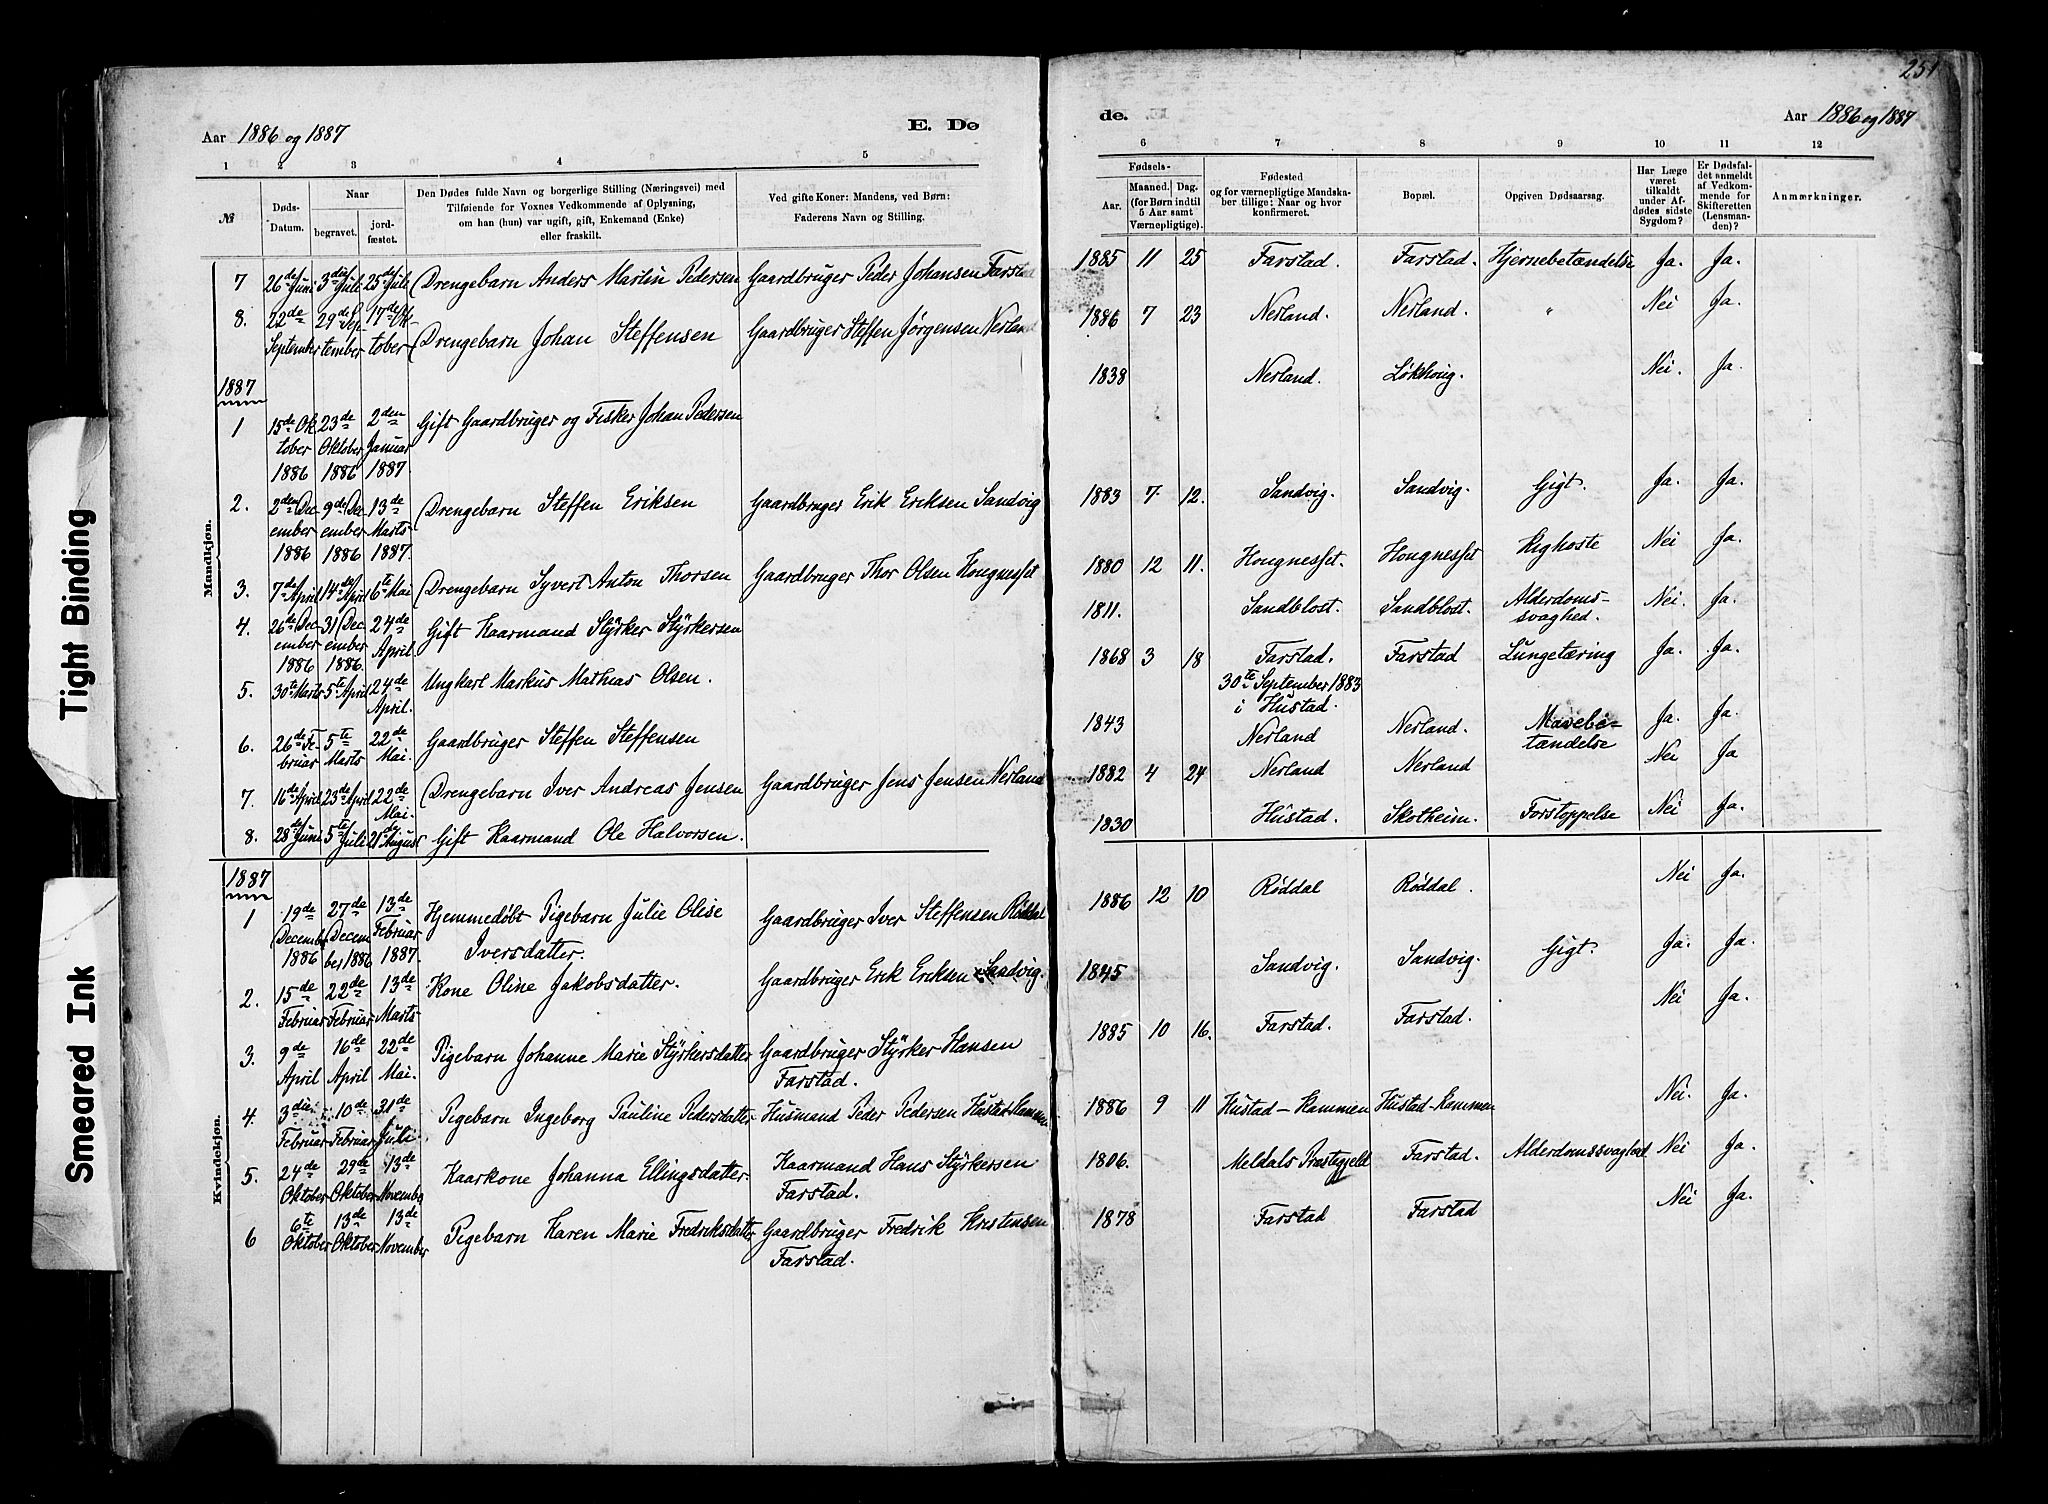 251
Aar 1886 og 1887
E. Dø
de.
Aar 1886 og 1887
1 2 3 4 5 6 7 8 9 10 11 12
№
Døds-Datum.
Naar
begravet.
jordfæstet.
Den Dødes fulde Navn og borgerlige Stilling (Næringsvei) med
Tilføiende for Voxnes Vedkommende af Oplysning,
om han (hun) var ugift, gift, Enkemand (Enke)
eller fraskilt.
Ved gifte Koner: Mandens, ved Børn:
Faderens Navn og Stilling.
Fødsels-
Aar.
Maaned. Dag.
(for Børn indtil
5 Aar samt
Værnepligtige).
Fødested
og for værnepligtige Mandska-
ber tillige: Naar og hvor
konfirmeret.
Bopæl.
Opgiven Dødsaarsag.
Har Læge
været
tilkaldt
under Af-
dødes sidste
Sygdom?
Er Dødsfal-
det anmeldt
af Vedkom-
mende for
Skifteretten
(Lensman-
den)?
Anmærkninger.
Mandkjøn.
7 26de Juni 3die Juli 25de Juli Drengebarn Anders Martin Pedersen Gaardbruger Peder Johansen Farstad 1885 11 25 Farstad. Farstad. Hjernebetændelse Ja. Ja.
8. 22de September 29de September 17de Oktober Drengebarn Johan Steffensen Gaardbruger Steffen Jørgensen Nerland 1886 7 23 Nerland. Nerland. " Nei Ja.
1887
1 15de Oktober 1886 23de Oktober 1886 2den Januar 1887 Gift Gaardbruger og Fisker Johan Pedersen 1838 Nerland. Løkhoug. Nei. Ja.
2. 2den December 1886 9de December 1886 13de Marts 1887. Drengebarn Steffen Eriksen Gaardbruger Erik Eriksen Sandvig 1883 7 12. Sandvig. Sandvig. Gigt. Ja. Ja.
3. 7de April 14de April 6te Mai Drengebarn Syvert Anton Thorsen Gaardbruger Thor Olsen Hougnesset 1880 12 11. Hougnesset. Hougnesset Kighoste Nei Ja.
4. 26de December 1886 31 December 1886. 24de April. Gift Kaarmand Styrker Styrkersen 1811. Sandblost. Sandblost. Alderdoms-svaghed. Nei. Ja.
5. 30te Marts 5te April 24de April. Ungkarl Markus Mathias Olsen. 1868 3 18 Farstad. 30te September 1883 i Hustad. Farstad Lungetæring Ja. Ja.
6. 26de Februar 5te Marts 22de Mai. Gaardbruger Steffen Steffensen 1843 Nerland Nerland. Mavebe-tændelse Ja. Ja.
7. 16de April 23de April 22de Mai. Drengebarn Iver Andreas Jensen Gaardbruger Jens Jensen Nerland 1882 4 24 Nerland Nerland Nei Ja
8. 28de Juni 5te Juli 21de August Gift Kaarmand Ole Halvorsen. 1830 Hustad. Skotheim. Forstoppelse Nei Ja.
Kvindekjøn.
1887
1 19de December 1886 27de December 1886 13de Februar 1887. Hjemmedøbt Pigebarn Julie Olise Iversdatter. Gaardbruger Iver Steffensen Røddal 1886 12 10 Røddal Røddal. Nei Ja.
2. 15de Februar 22de Februar 13de Marts Kone Oline Jakobsdatter. Gaardbruger Erik Eriksen Sandvig. 1845 Sandvig. Sandvig. Gigt. Ja. Ja.
3. 9de April 16de April 22de Mai. Pigebarn Johanne Marie Styrkersdatter Gaardbruger Styrker Hansen Farstad. 1885 10 16. Farstad. Farstad. Nei Ja.
4. 3die Februar 10de Februar 31de Juli. Pigebarn Ingeborg Pauline Pedersdatter Husmand Peder Pedersen Hustad-Kammen 1886 9 11 Hustad-Kammen Hustad-Kammen Nei. Ja.
5. 24de Oktober 29de Oktober 13de November Kaarkone Johanna Ellingsdatter. Kaarmand Hans Styrkersen Farstad. 1806. Meldals Præstegjeld Farstad. Alderdomssvaghed Nei Ja.
6 6te Oktober 13de Oktober 13de November Pigebarn Karen Marie Fredriksdatter Gaardbruger Fredrik Kristensen Farstad. 1878 Farstad Farstad Nei Ja.
Tight Binding
Smeared Ink